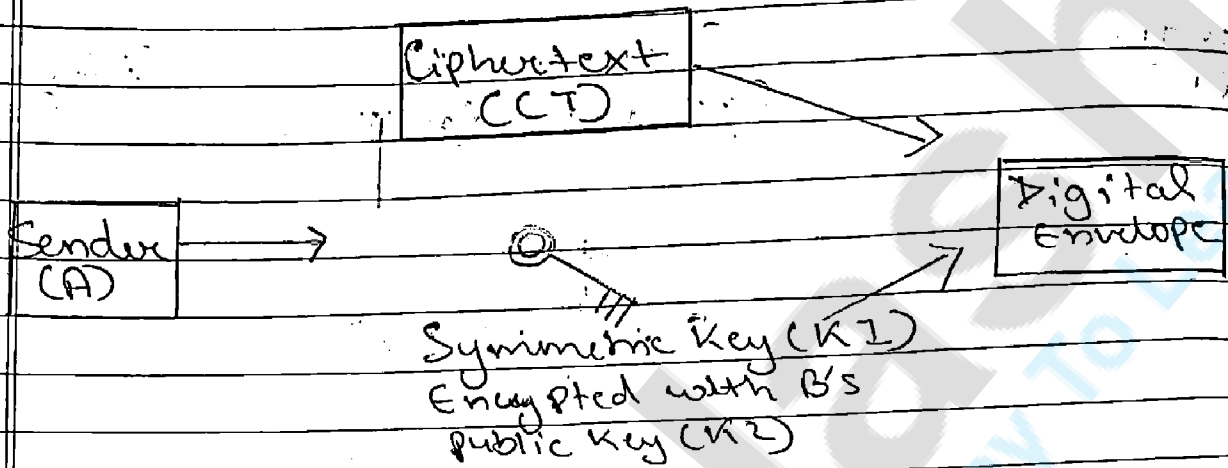 Ciphertext
(CT)
Sender
(A)
Digital
Envelope
Symmetric Key (K1)
Encrypted with B's
public key (K2)
To